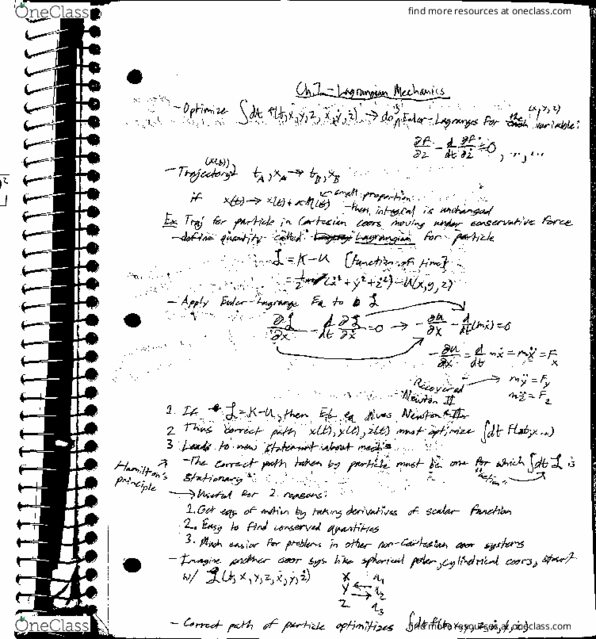 OneClass
find more resources at oneclass.com
Ch.7 - Lagrangian Mechanics
(x,y,z)
- Optimize ∫dt f(t,x,y,z,ẋ,ẏ,ż) → do 3 Euler-Lagranges for each variable:
∂F/∂z - d/dt ∂F/∂ż = 0, ", ...
(x(t))
- Trajectory t_A, x_A → t_B, x_B
small proportion
if x(t) → x(t) + αη(t) - then integral is unchanged
Ex Traj for particle in Cartesian coors moving under conservative force
- define quantity called Lagrangian for particle
ℒ = K - U [function of time]
= ½m(ẋ² + ẏ² + ż²) - U(x,y,z)
- Apply Euler-Lagrange Eq to ℒ
∂ℒ/∂x - d/dt ∂ℒ/∂ẋ = 0 → -∂U/∂x - d/dt(mẋ) = 0
-∂U/∂x = d/dt mẋ = mẍ = F_x
Recovered Newton II → mÿ = F_y
mz̈ = F_z
1. If ℒ = K-U, then EL eq gives Newton II
2 Thus correct path x(t), y(t), z(t) must optimize ∫dt F(t,x...)
3 Leads to new statement about mech:
- The correct path taken by particle must be one for which ∫dt ℒ is
Hamilton's principle
stationary
"action"
→ Useful for 2 reasons:
1. Get eqs of motion by taking derivatives of scalar function
2. Easy to find conserved quantities
3. Much easier for problems in other non-Cartesian coor systems
- Imagine another coor sys like spherical polar, cylindrical coors, start
w/ ℒ(t,x,y,z,ẋ,ẏ,ż)
x q₁
y q₂
z q₃
- Correct path of particle optimizes ∫dt
OneClass
find more resources at oneclass.com